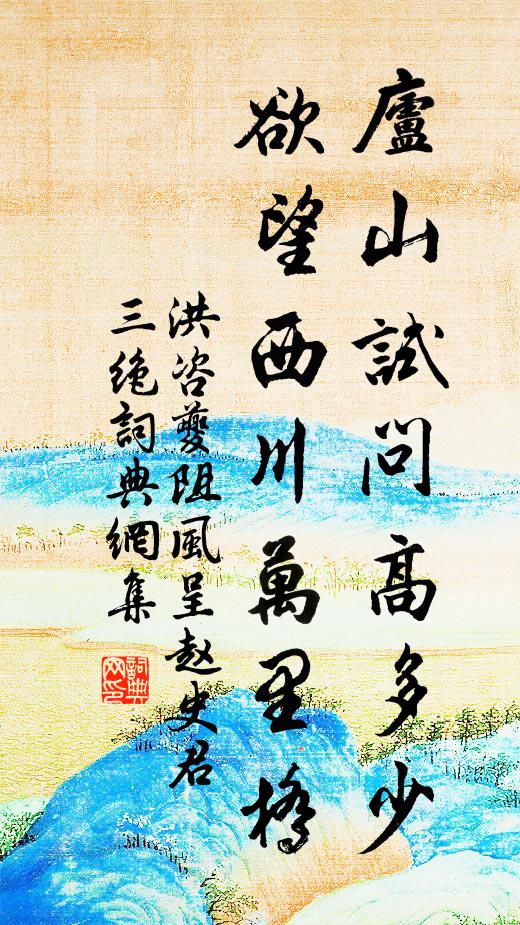 廬山試問高多少
欲望西川萬里橋
洪咨夔阻風呈赵史君
三绝詞典網集
詞典网印